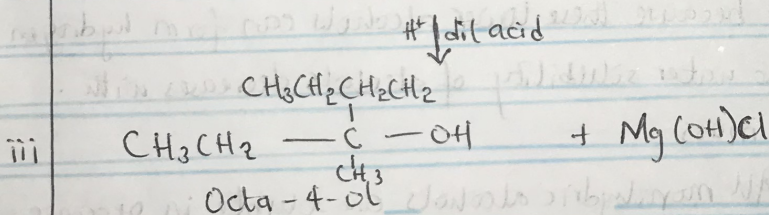 H⁺ ↓ dil acid
CH₃CH₂CH₂CH₂
iii CH₃CH₂ — C — OH + Mg(OH)Cl
CH₃
Octa - 4 - ol